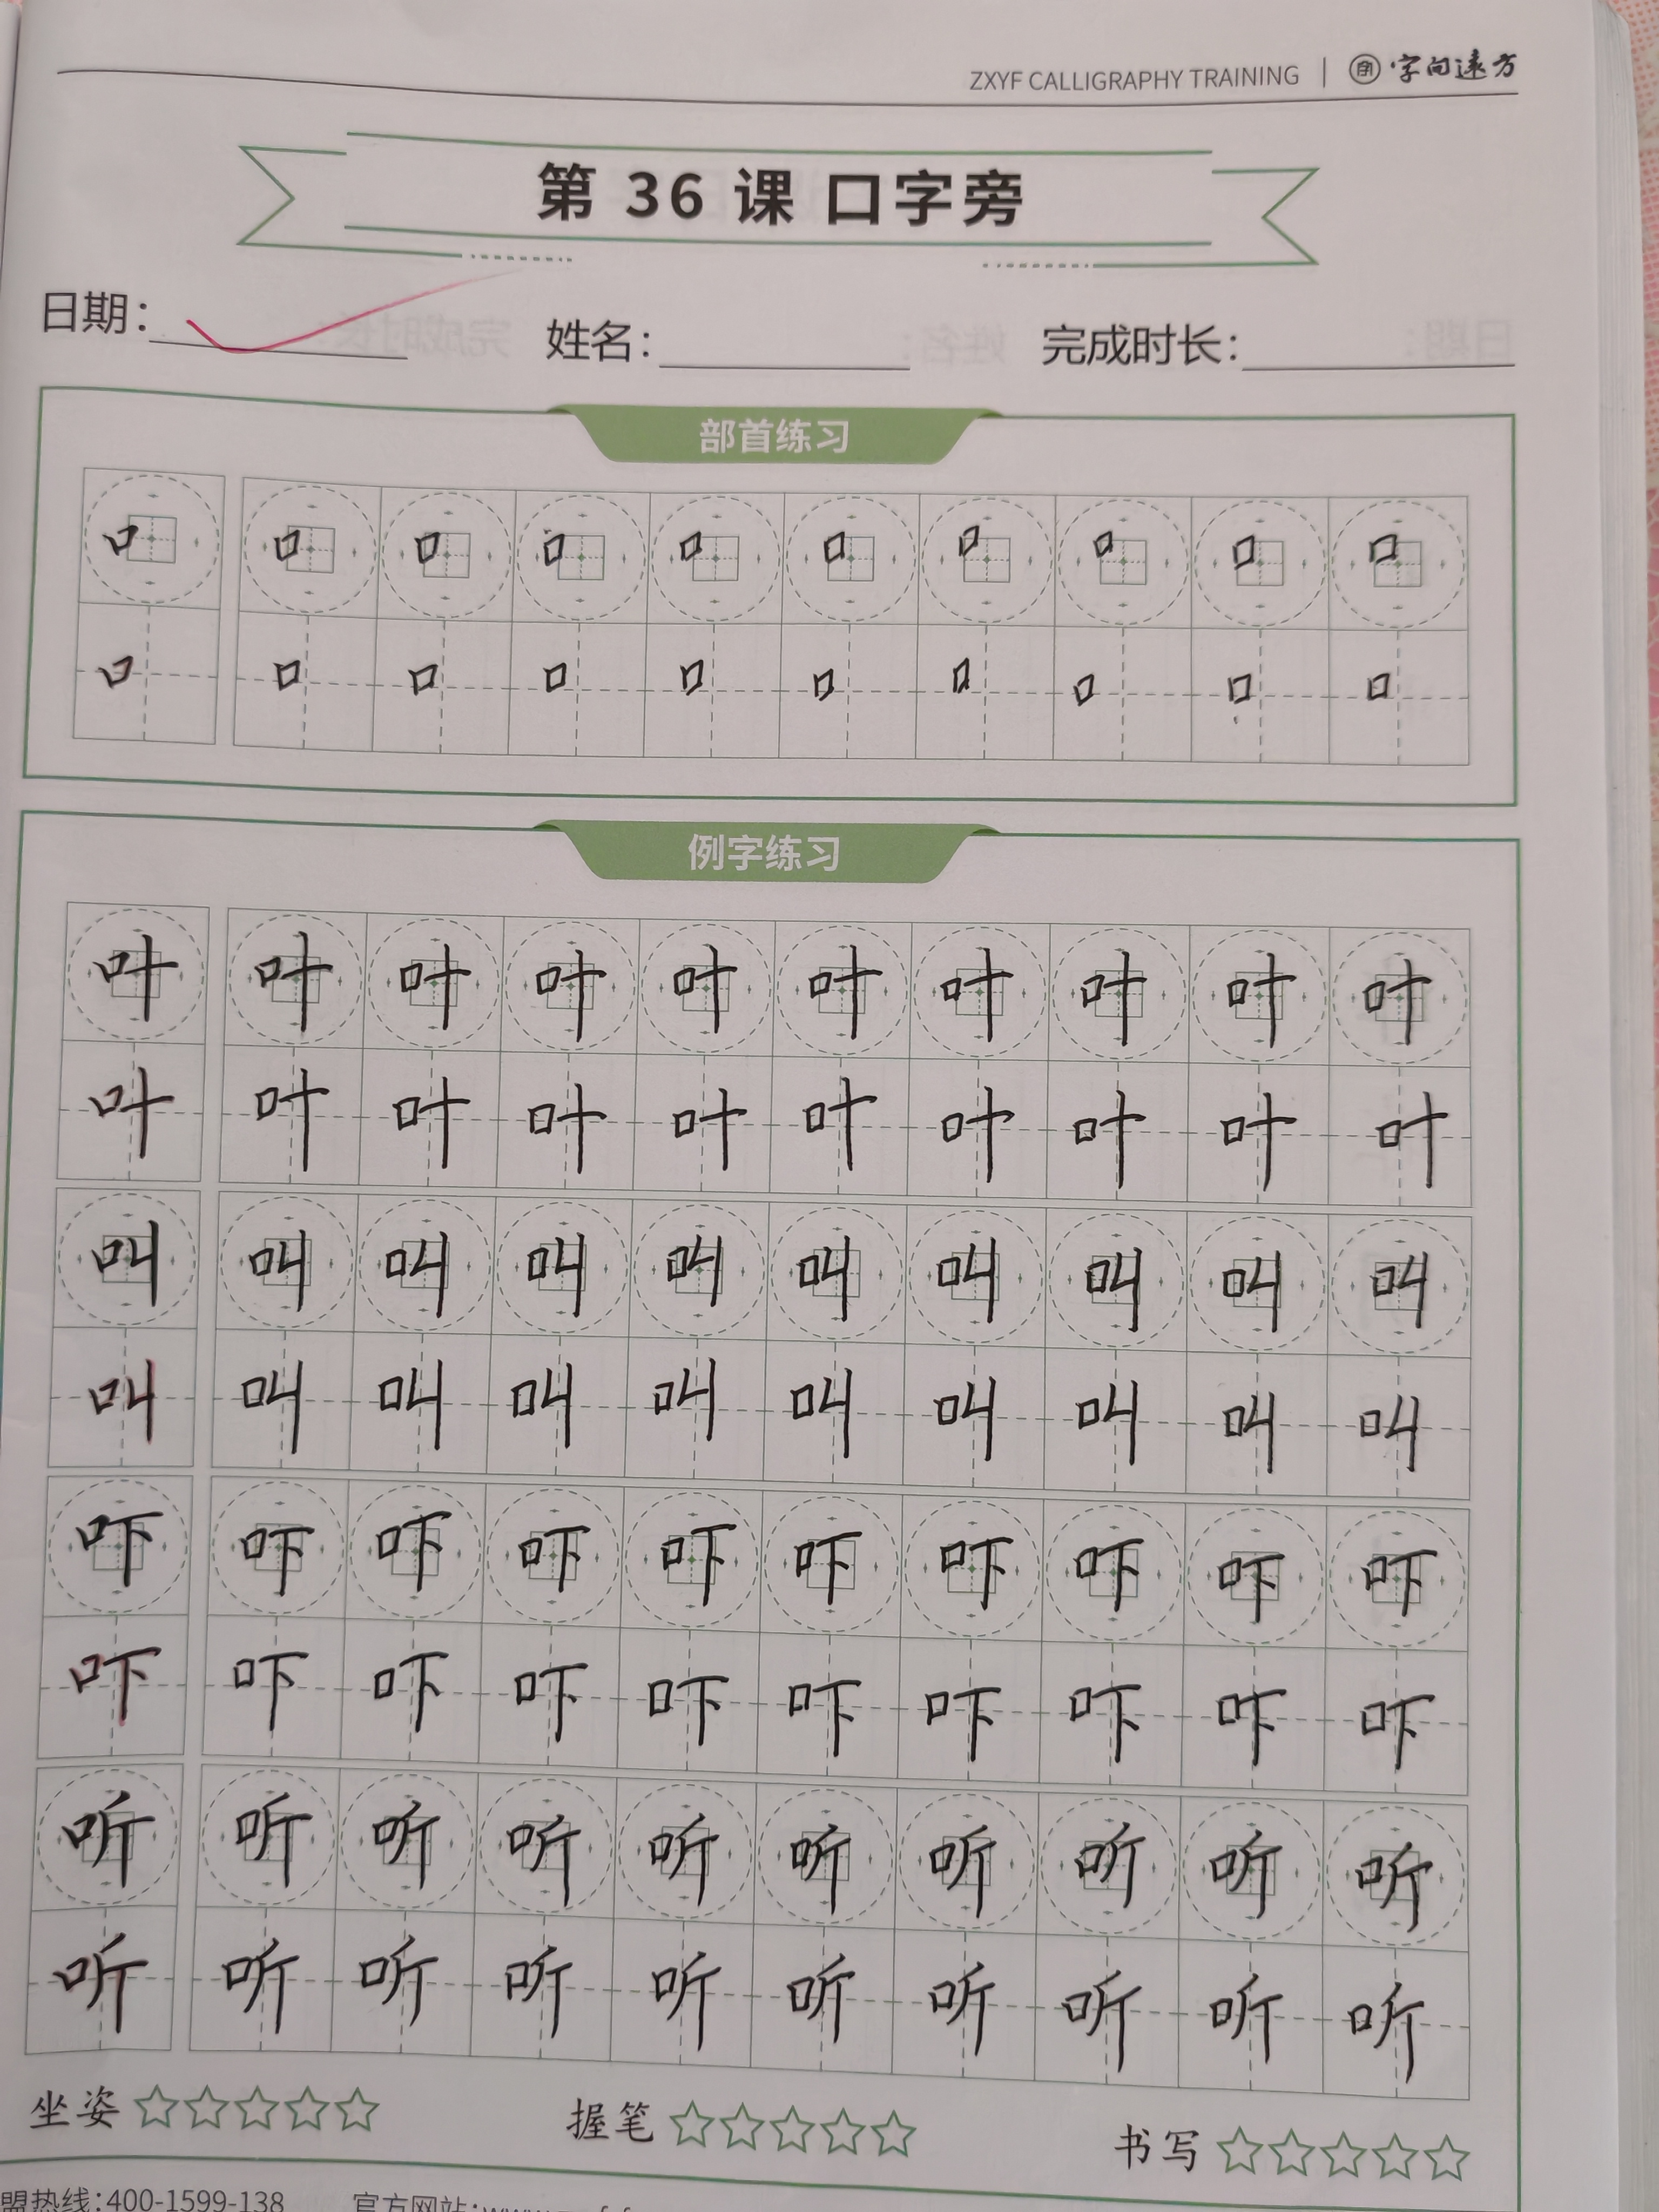 ZXYF CALLIGRAPHY TRAINING | 字向远方
第 36 课 口字旁
日期： 姓名： 完成时长：
部首练习
口 口 口 口 口 口 口 口 口 口
口 口 口 口 口 口 口 口 口 口
例字练习
叶 叶 叶 叶 叶 叶 叶 叶 叶 叶
叶 叶 叶 叶 叶 叶 叶 叶 叶 叶
叫 叫 叫 叫 叫 叫 叫 叫 叫 叫
叫 叫 叫 叫 叫 叫 叫 叫 叫 叫
吓 吓 吓 吓 吓 吓 吓 吓 吓 吓
吓 吓 吓 吓 吓 吓 吓 吓 吓 吓
听 听 听 听 听 听 听 听 听 听
听 听 听 听 听 听 听 听 听 听
坐姿 ☆☆☆☆☆ 握笔 ☆☆☆☆☆ 书写 ☆☆☆☆☆
盟热线：400-1599-138 官方网站：